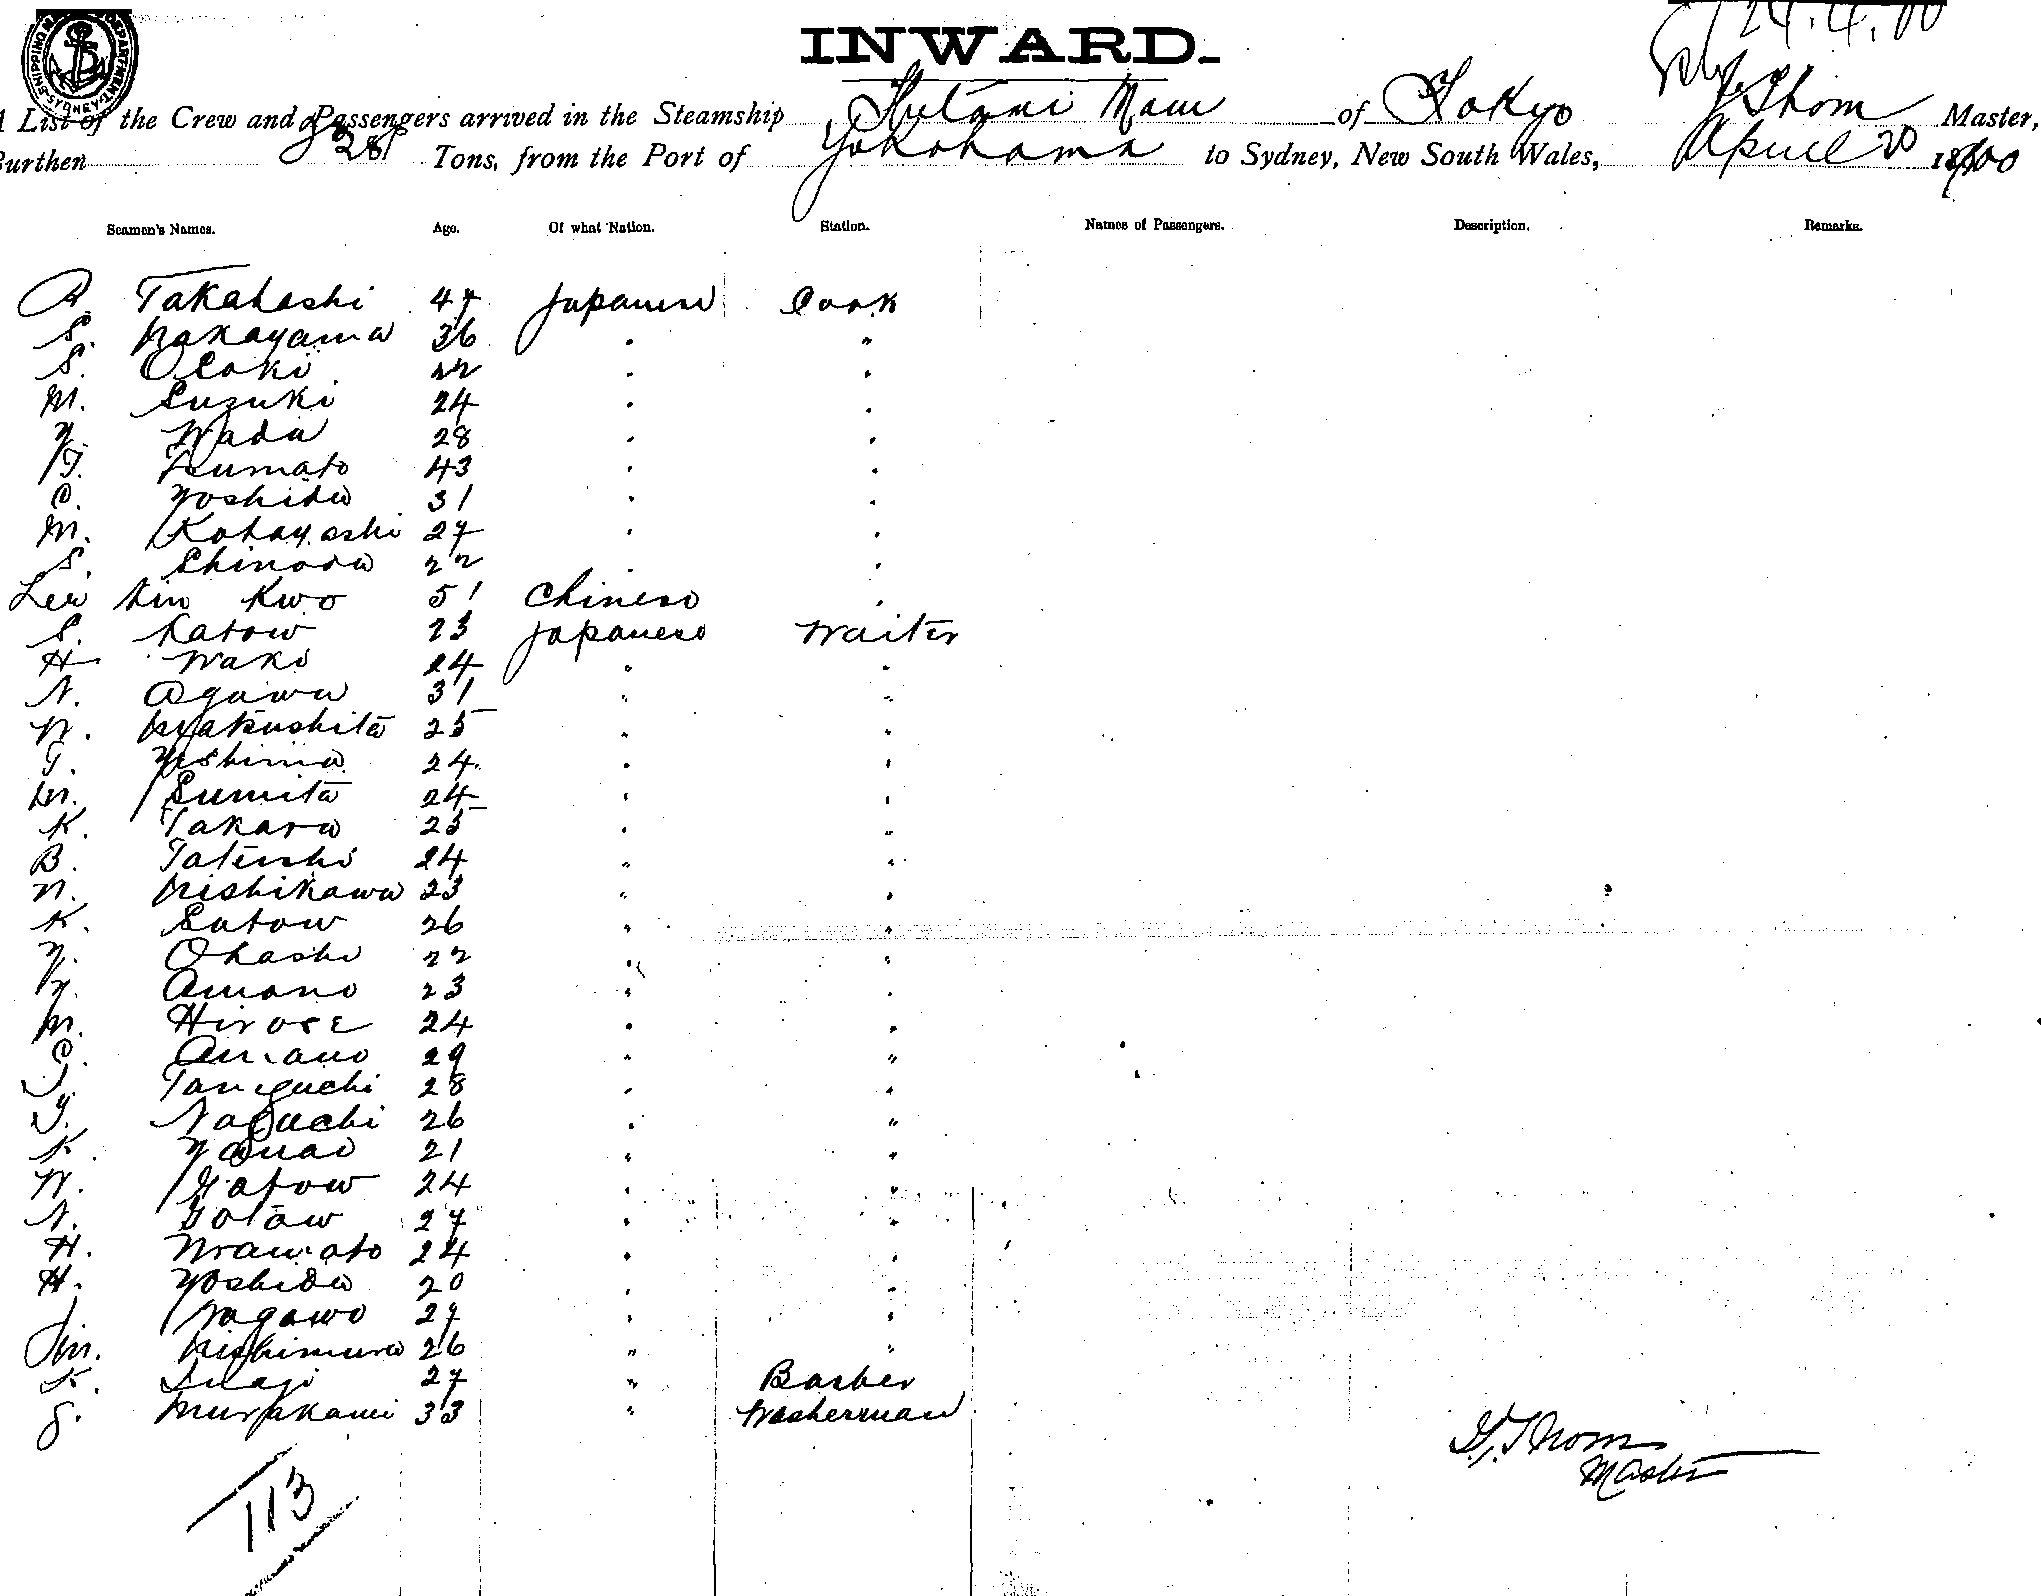 24.4.00
INWARD.
SHIPPING DEPARTMENT SYDNEY
A List of the Crew and Passengers arrived in the Steamship Futami Maru of Tokyo J Thom Master,
Burthen Tons, from the Port of Yokohama to Sydney, New South Wales, April 20 1900
Seamen's Names. Age. Of what Nation. Station. Names of Passengers. Description. Remarks.
R. Takahashi 47 Japanese Cook
S. Nakayama 36 " "
S. Otaki 22 " "
M. Suzuki 24 " "
Y. Wada 28 " "
T. Tsumato 43 " "
C. Yoshida 31 " "
M. Kobayashi 27 " "
S. Shinoda 22 " "
Lee Kin Kwo 51 Chinese "
S. Katow 23 Japanese Waiter
H Waki 24 " "
N. Agawa 31 " "
N. Myakushita 25 " "
T. Yeshima 24 " "
M. Sumita 24 " "
K. Takara 25 " "
B. Tateishi 24 " "
N. Nishikawa 23 " "
K. Satow 26 " "
Y. Ohashi 22 " "
Y. Amano 23 " "
M. Hirose 24 " "
C. Amano 29 " "
J. Taniguchi 28 " "
Y. Naguchi 26 " "
K. Yanai 21 " "
N. Katow 24 " "
N. Gotow 27 " "
H. 24 " "
H. Yoshida 20 " "
Nagawo 27 " "
M. Nishimura 26 " "
K. 27 " Barber
S. Murakami 33 " Washerman
J. Thom
Master
113